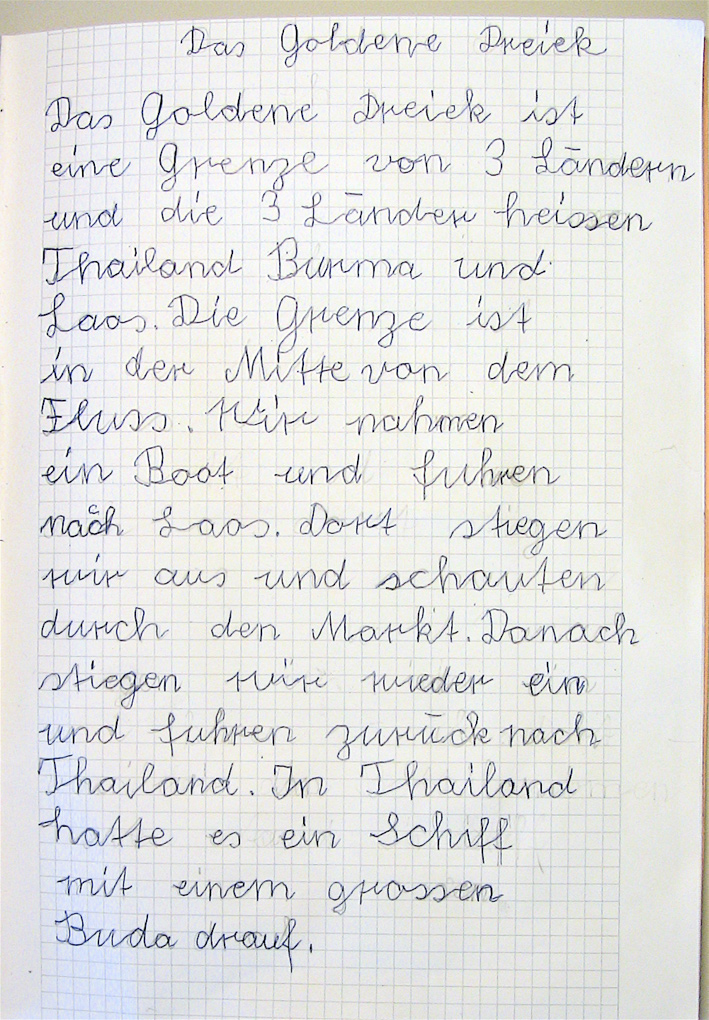 Das Goldene Dreiek
Das Goldene Dreiek ist
eine Grenze von 3 Ländern
und die 3 Länder heissen
Thailand Burma und
Laos. Die Grenze ist
in der Mitte von dem
Fluss. Wir nahmen
ein Boot und fuhren
nach Laos. Dort stiegen
wir aus und schauten
durch den Markt. Danach
stiegen wir wieder ein
und fuhren zurück nach
Thailand. In Thailand
hatte es ein Schiff
mit einem grossen
Buda drauf.